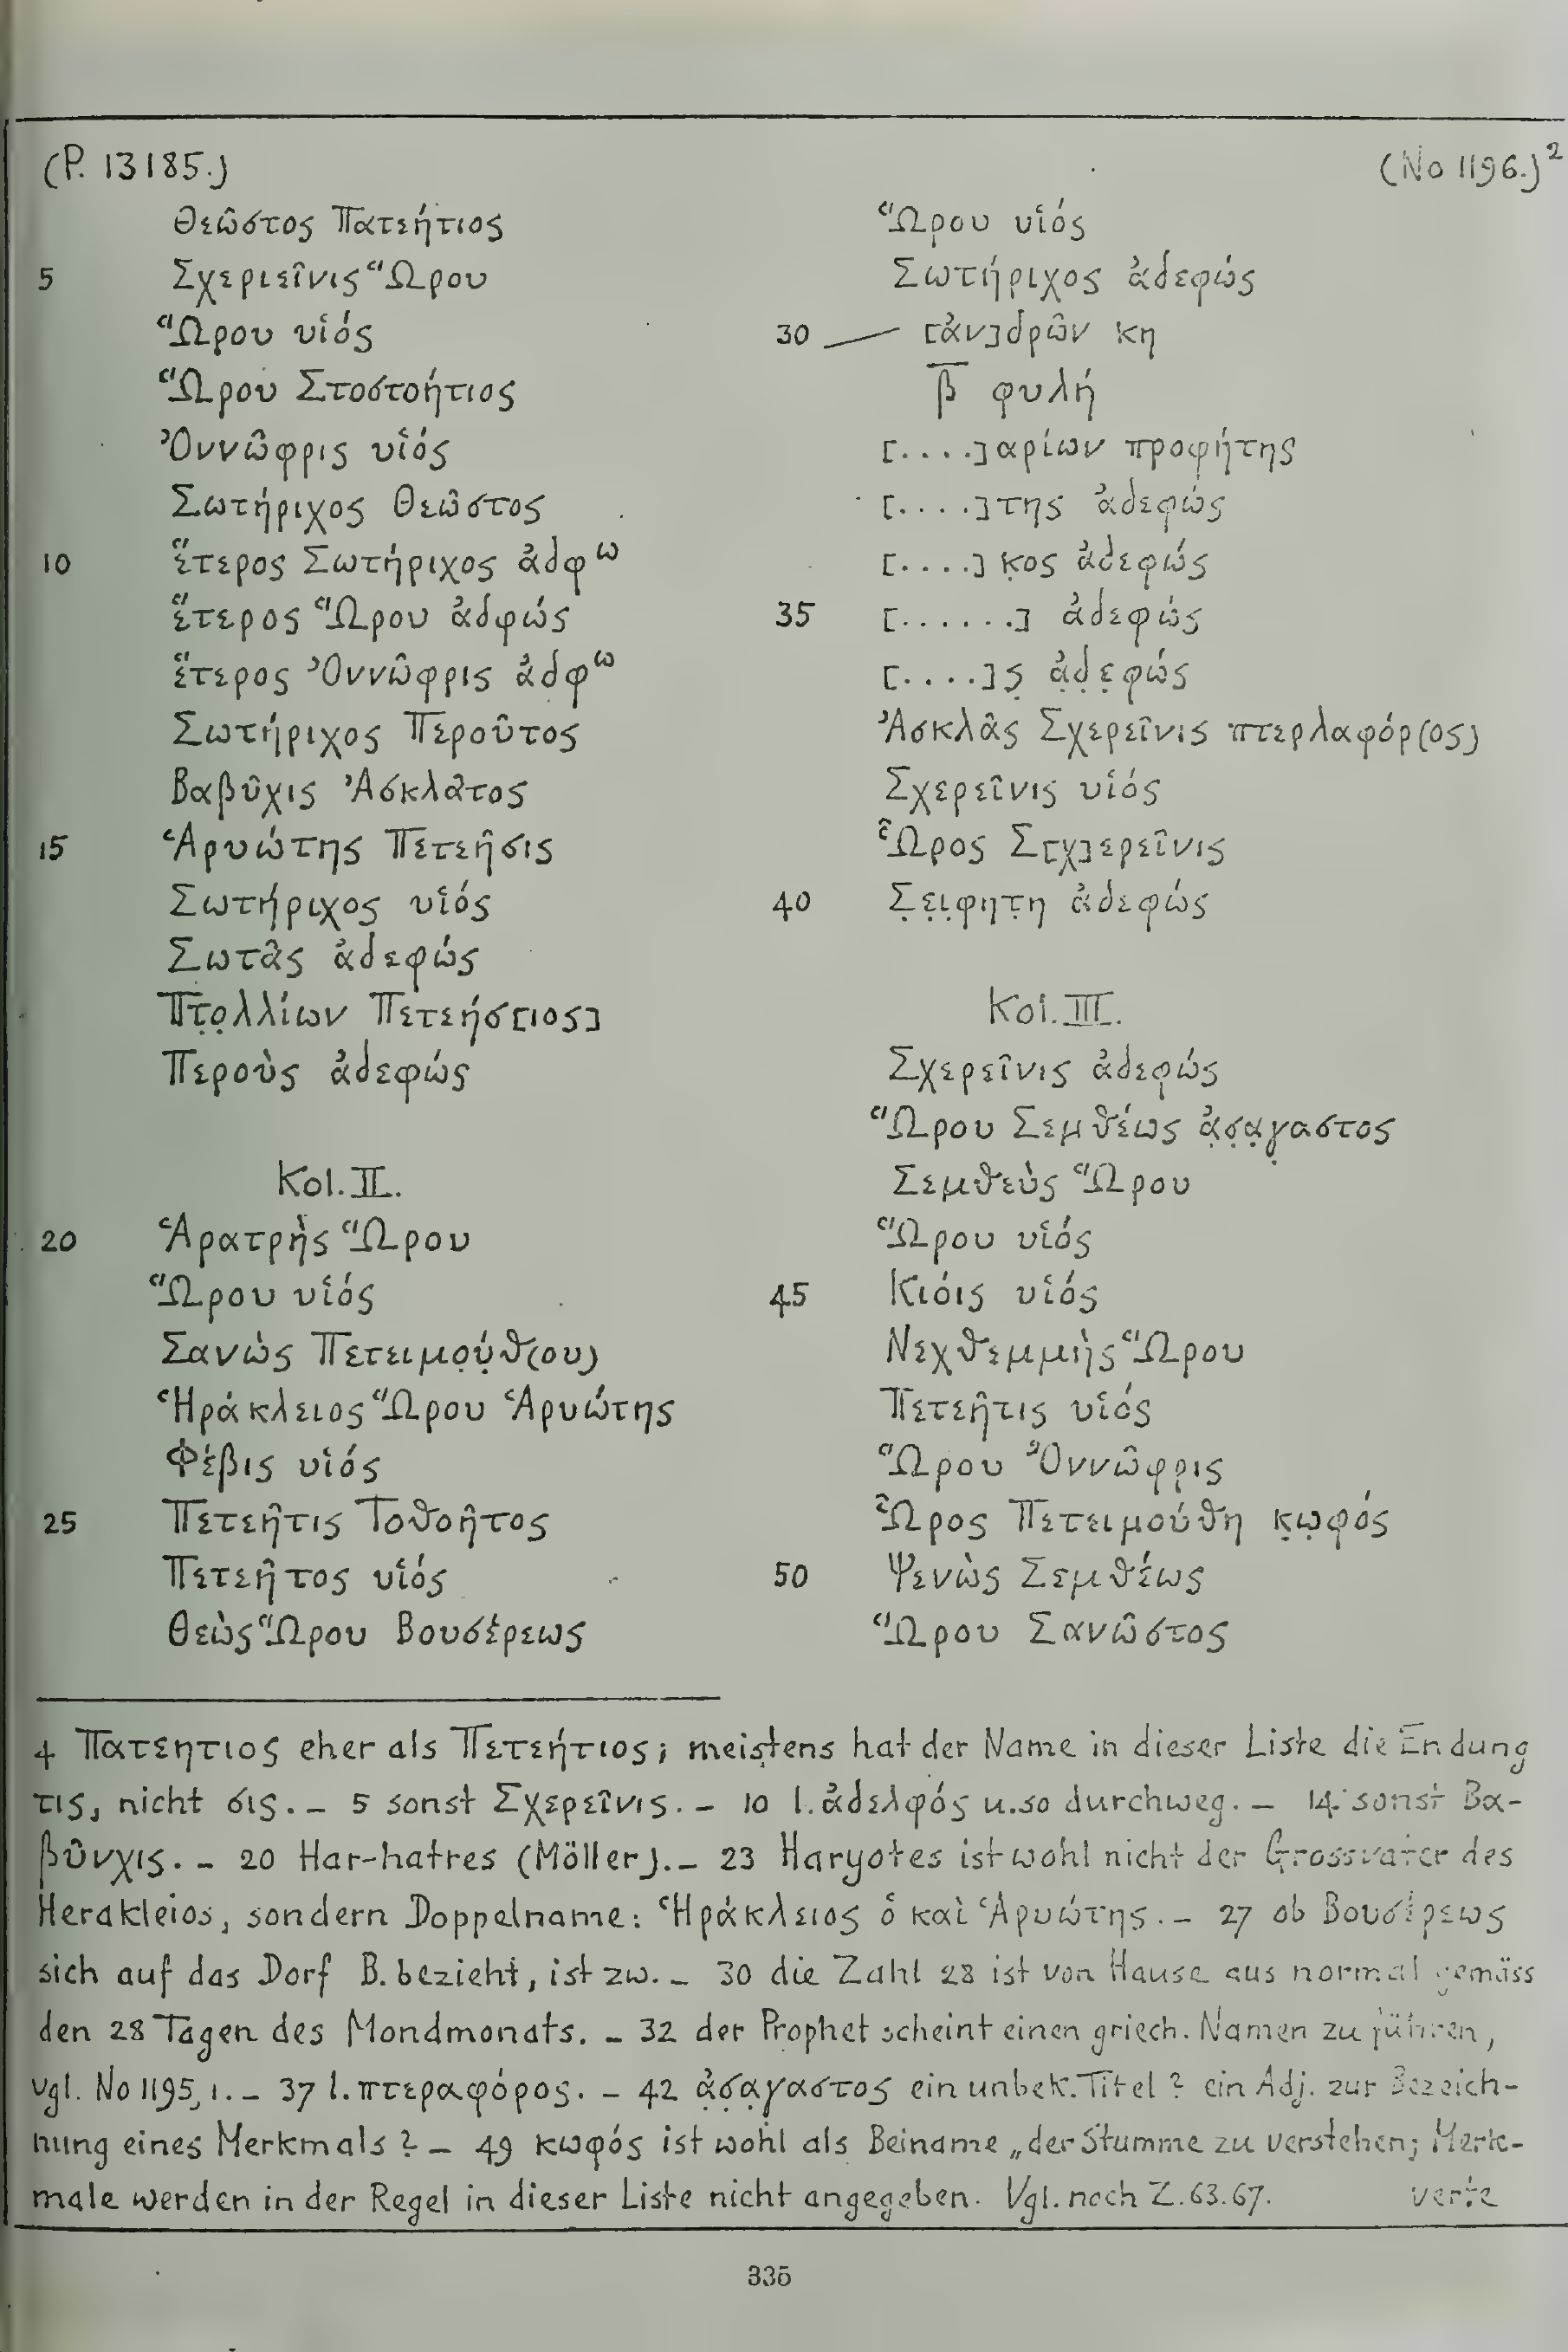 (P. 13185.)
(No 1196.)²
Θεῶστος Πατεήτιος
5 Σχεριεῖνις Ὥρου
Ὥρου υἱός
Ὥρου Στοστοήτιος
Ὀννῶφρις υἱός
Σωτήριχος Θεῶστος
10 ἕτερος Σωτήριχος ἀδφω
ἕτερος Ὥρου ἀδφώς
ἕτερος Ὀννῶφρις ἀδφω
Σωτήριχος Περοῦτος
Βαβῦχις Ἀσκλᾶτος
15 Ἁρυώτης Πετεῆσις
Σωτήριχος υἱός
Σωτᾶς ἀδεφώς
Πτ̣ο̣λλίων Πετεήσ[ιος]
Περοὺς ἀδεφώς
Kol. II.
20 Ἁρατρὴς Ὥρου
Ὥρου υἱός
Σανὼς Πετειμο̣ύ̣θ(ου)
Ἡράκλειος Ὥρου Ἁρυώτης
Φέβις υἱός
25 Πετεῆτις Τοθοῆτος
Πετεῆτος υἱός
Θεὼς Ὥρου Βουσέρεως
Ὥρου υἱός
Σωτήριχος ἀδεφώς
30 [ἀν]δρῶν κη
β̅ φυλή
[....]αρίων προφήτης
[....]της ἀδεφώς
[....]κ̣ος ἀδεφώς
35 [......] ἀδεφώς
[....]ς̣ ἀ̣δ̣ε̣φώς
Ἀσκλᾶς Σχερεῖνις πτερλαφόρ(ος)
Σχερεῖνις υἱός
Ὧρος Σ[χ]ερεῖνις
40 Σ̣ε̣ι̣φητ̣η ἀδεφώς
Kol. III.
Σχερεῖνις ἀδεφώς
Ὥρου Σεμθέως ἀ̣σ̣α̣γ̣αστος
Σεμθεὺς Ὥρου
Ὥρου υἱός
45 Κιόις υἱός
Νεχθεμμιὴς Ὥρου
Πετεῆτις υἱός
Ὥρου Ὀννῶφρις
Ὧρος Πετειμούθη κ̣ω̣φός
50 Ψενὼς Σεμθέως
Ὥρου Σανῶστος
4 Πατεητιος eher als Πετεήτιος; meistens hat der Name in dieser Liste die Endung
τις, nicht σις. – 5 sonst Σχερεῖνις. – 10 l. ἀδελφός u. so durchweg. – 14. sonst Βα-
βῦνχις. – 20 Har-hatres (Möller). – 23 Haryotes ist wohl nicht der Grossvater des
Herakleios, sondern Doppelname: Ἡράκλειος ὁ καὶ Ἁρυώτης. – 27 ob Βουσέρεως
sich auf das Dorf B. bezieht, ist zw. – 30 die Zahl 28 ist von Hause aus normal gemäss
den 28 Tagen des Mondmonats. – 32 der Prophet scheint einen griech. Namen zu führen,
vgl. No 1195, 1. – 37 l. πτεραφόρος. – 42 ἀ̣σ̣α̣γαστος ein unbek. Titel? ein Adj. zur Bezeich-
nung eines Merkmals? – 49 κωφός ist wohl als Beiname „der Stumme zu verstehen; Merk-
male werden in der Regel in dieser Liste nicht angegeben. Vgl. noch Z. 63. 67.
verte
335